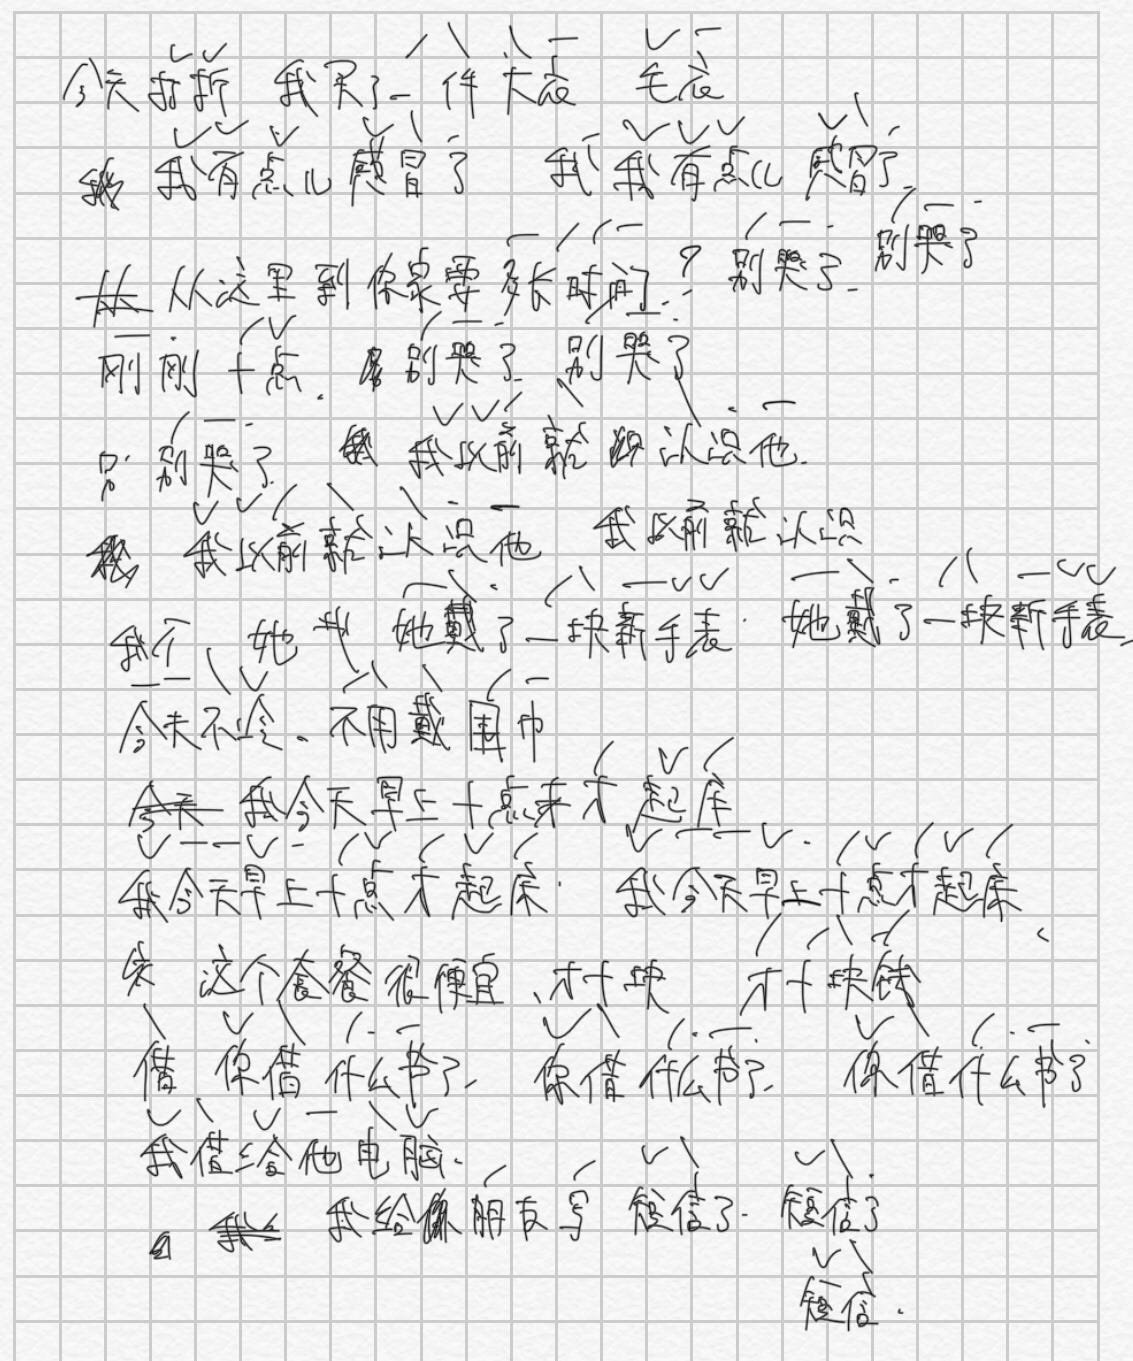 今天打折 我买了一件大衣 毛衣
我有点儿感冒了 我 我有点儿感冒了
从这里到你家要多长时间？ 别哭了 别哭了
刚刚十点. 别哭了 别哭了
别 别哭了 我以前就认识他.
我以前就认识他 我以前就认识
我个 她 她戴了一块新手表. 她戴了一块新手表
今天不冷. 不用戴围巾
今天 我今天早上十点来才起床
我今天早上十点才起床. 我今天早上十点才起床
这个套餐很便宜、才十块 才十块钱
借 你借什么书了. 你借什么书了. 你借什么书了
我借给他电脑.
我给朋友写 短信了. 短信了
短信.